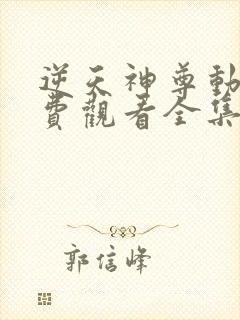 逆天神尊動
費觀看全集
郭信峰